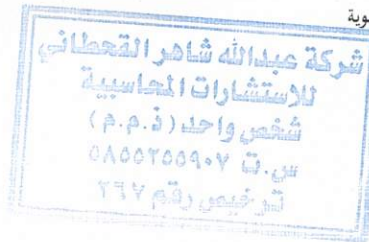 وية
شركة عبدالله شاهر القحطاني
للاستشارات المحاسبية
شخص واحد (ذ.م.م)
س.ت ٥٨٥٥٣٥٥٩٠٧
ترخيص رقم ٣٦٧